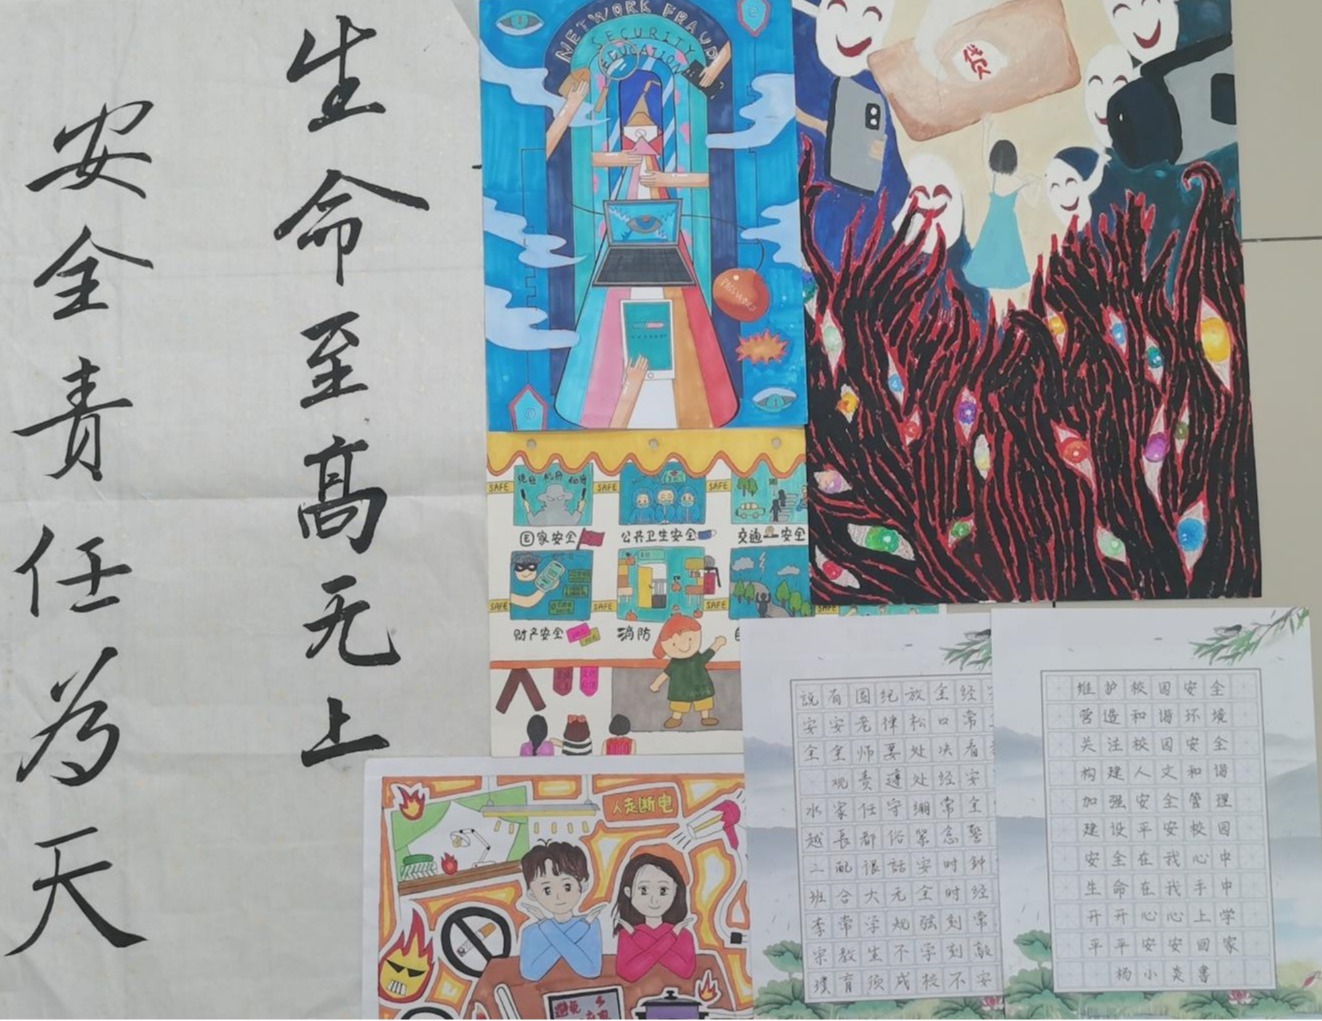 生命至高无上
安全责任为天
NETWORK FRAUD
SECURITY
EDUCATION
PASSWORD
贷
SAFE
SAFE
SAFE
国家安全
公共卫生安全
交通安全
SAFE
SAFE
SAFE
财产安全
消防
人走断电
经常看安全警钟经常敲安
全口决常念时时刻刻不
放松处处绷紧安全弦学校
纪律要遵守俗話无规不成
国老师责任都很大学生须
有安全观家長配合常教育
说安全 水越二班李宗璞
维护校园安全
营造和谐环境
关注校园安全
构建人文和谐
加强安全管理
建设平安校园
安全在我心中
生命在我手中
开开心心上学
平平安安回家
杨小炎书